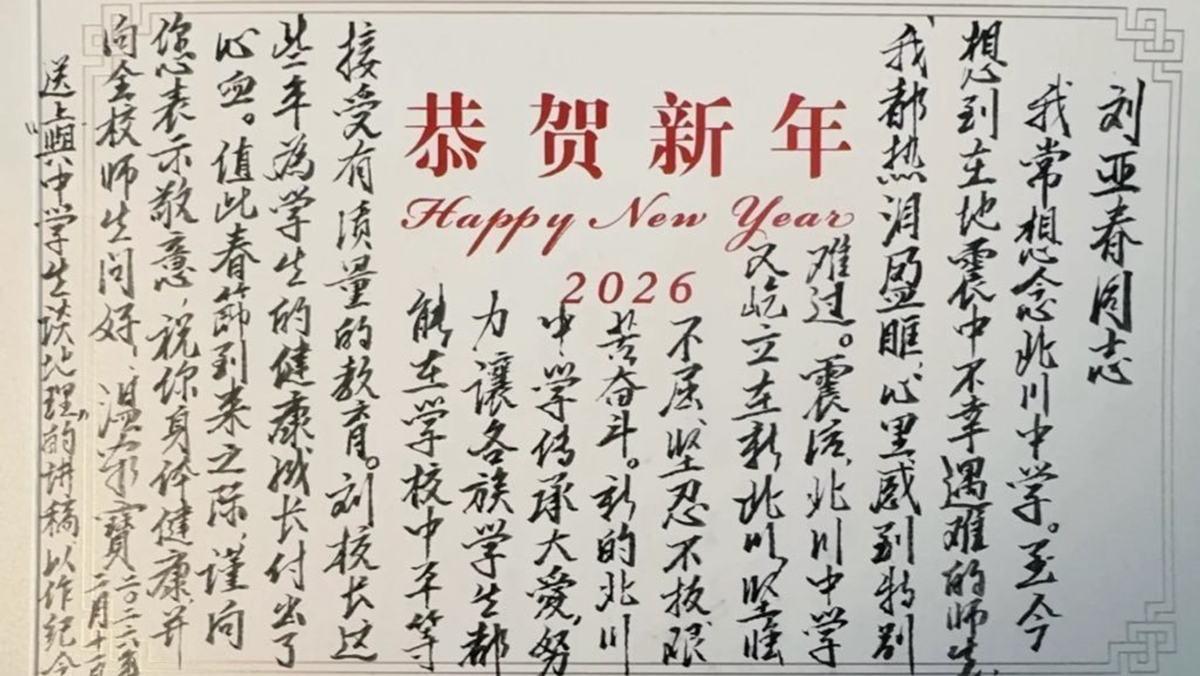 恭贺新年
Happy New Year
2026
刘亚春同志
我常想念北川中学。至今
想到在地震中不幸遇难的师生
我都热泪盈眶,心里感到特别
难过。震后,北川中学
又屹立在新北川,坚强
不屈,坚忍不拔,艰
苦奋斗。新的北川
中学传承大爱,努
力讓各族学生都
能在学校中平等
接受有质量的教育。刘校长这
些年為学生的健康成长付出了
心血。值此春節到来之际,谨向
您表示敬意,祝你身体健康并
向全校师生问好!温家寶
二〇二六年
二月十
送上“與中学生谈地理”的讲稿以作纪念